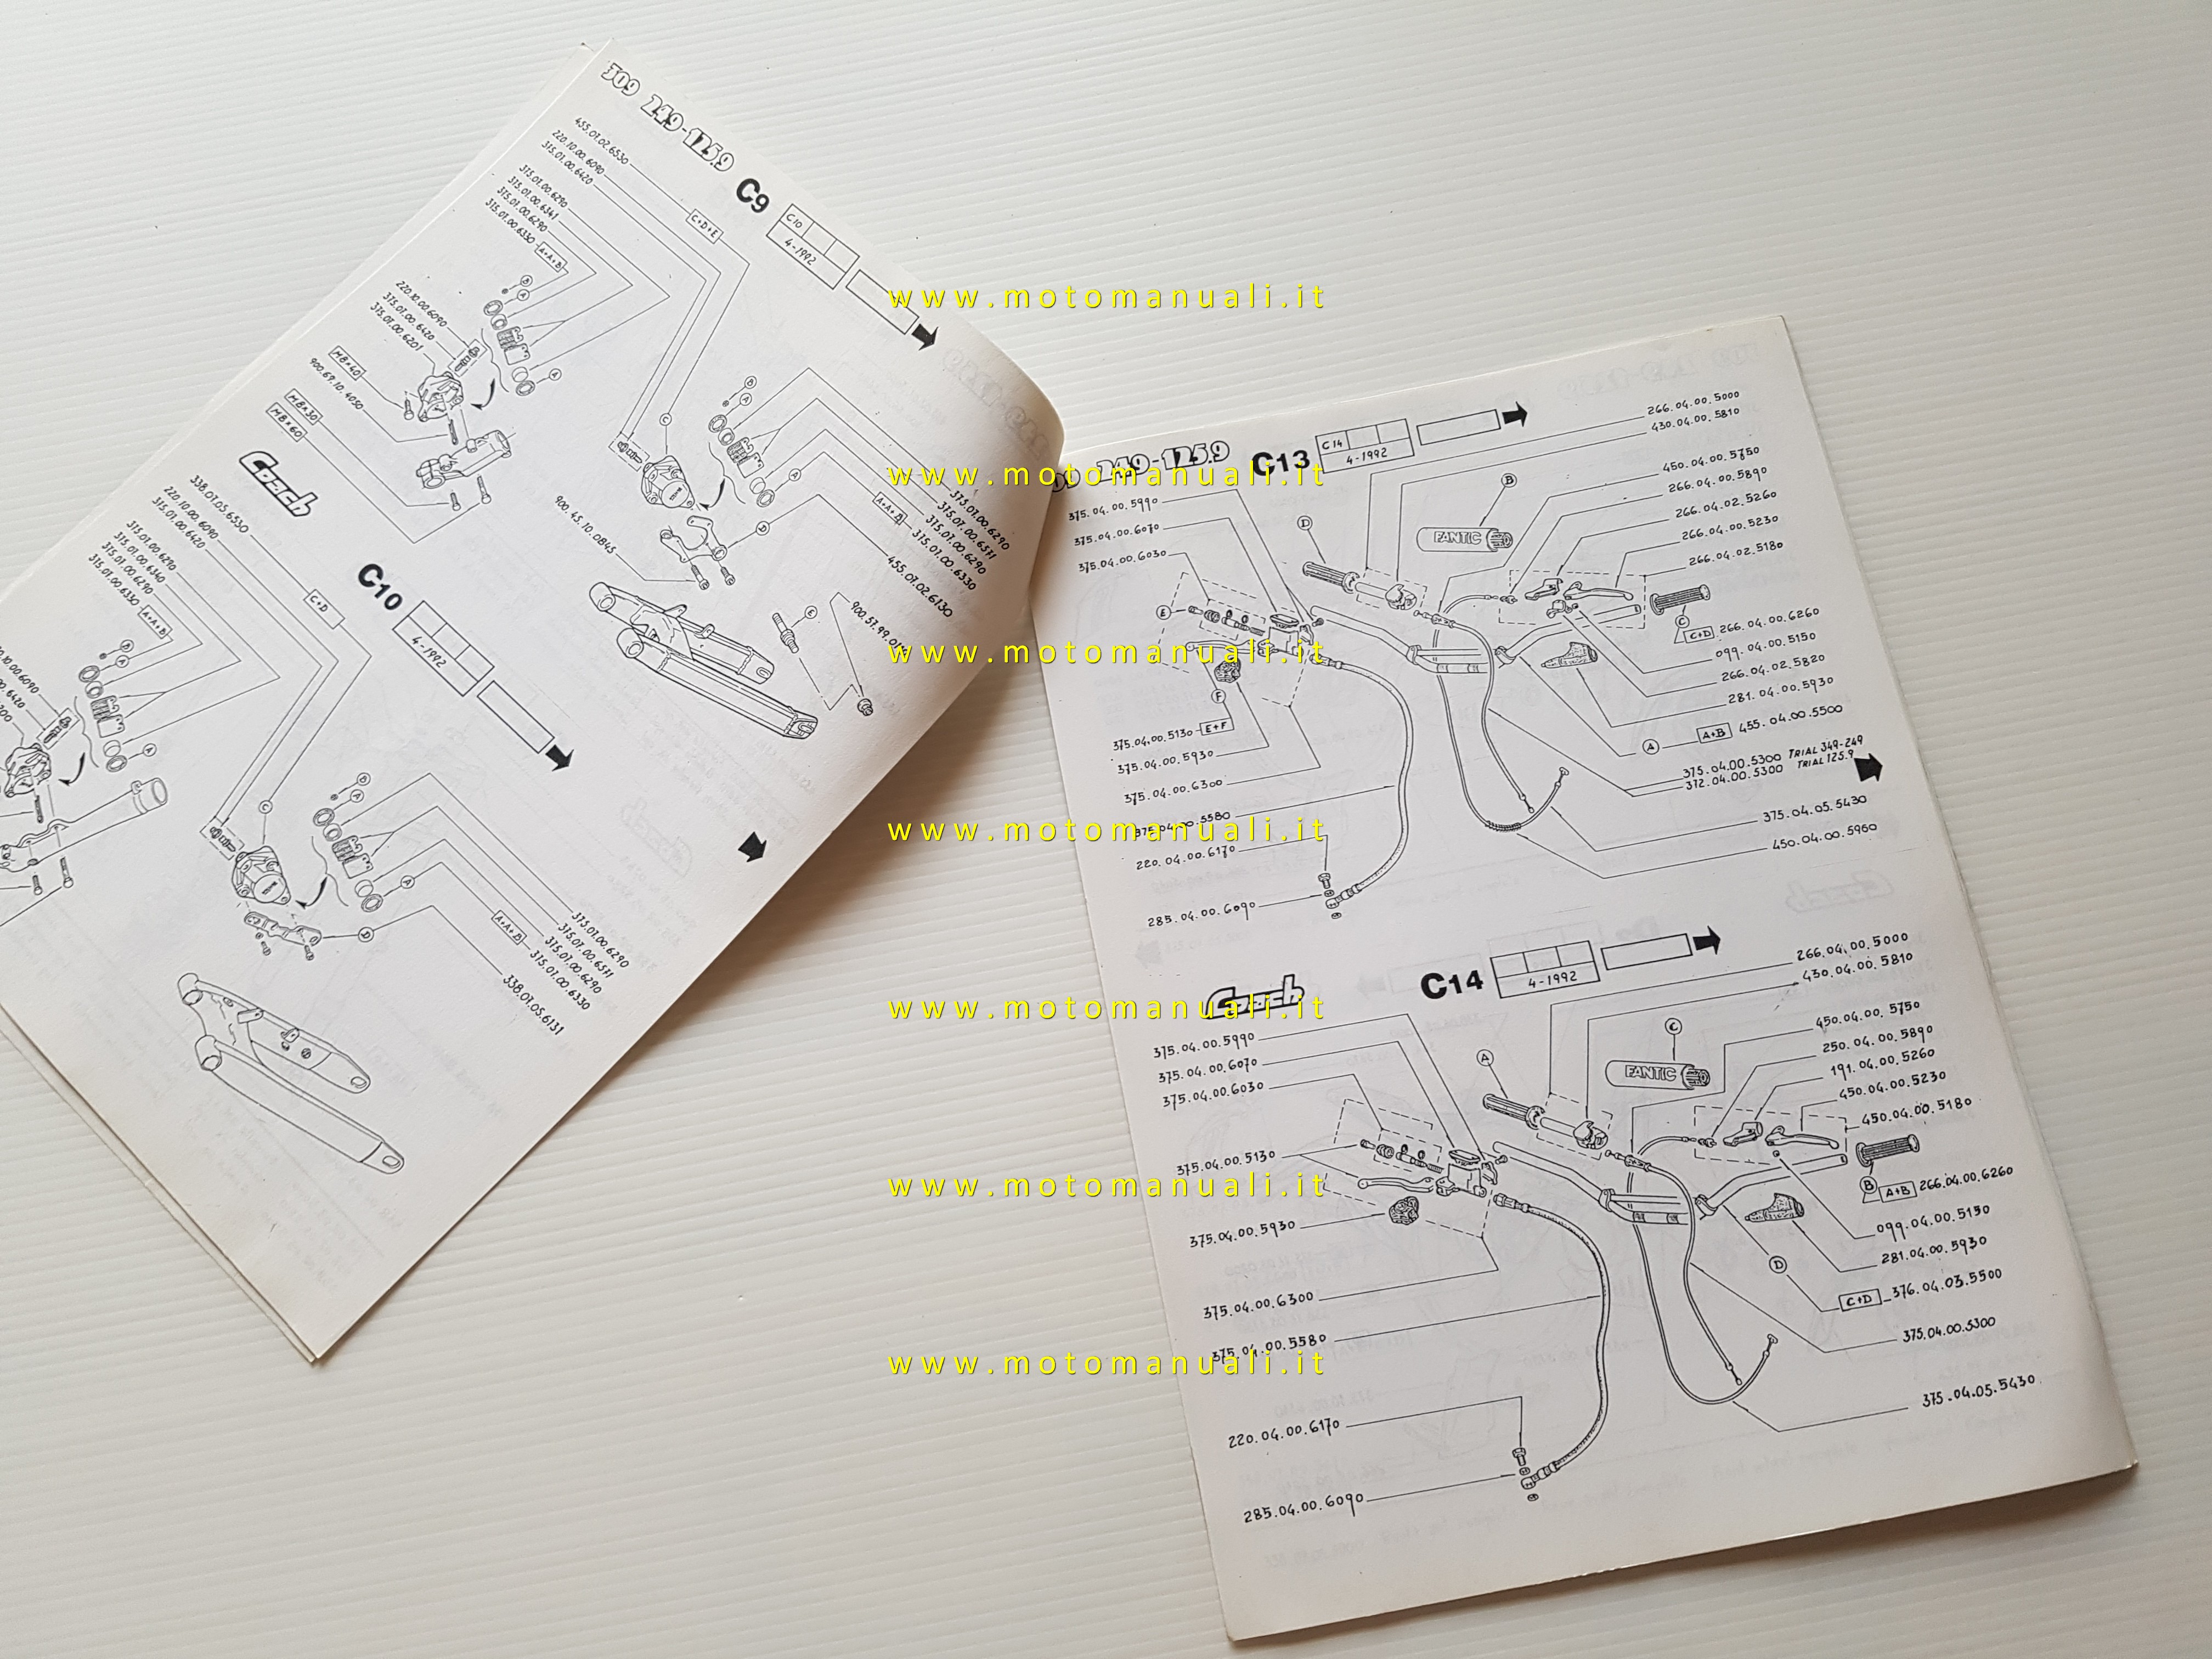 309 249-125.9
C9
C10
4-1992
455.07.02.6530
220.10.00.6090
315.01.00.6420
C+D+E
375.01.00.6290
315.01.00.6341
315.01.00.6290
315.01.00.6330
A+A+B
B
A
A
220.10.00.6090
375.01.00.6420
375.01.00.6201
M8×40
900.67.10.4050
M8×30
M8×60
C
B
A
A
D
E
375.01.00.6290
315.01.00.6511
315.01.00.6290
315.01.00.6330
A+A+B
455.07.02.6130
900.45.10.0845
Coach
C10
4-1992
338.07.05.6530
220.10.00.6090
315.01.00.6420
C+D
315.01.00.6290
315.01.00.6340
315.01.00.6290
315.01.00.6330
A+A+B
B
A
A
C
B
A
A
D
375.01.00.6290
315.01.00.6511
315.01.00.6290
315.01.00.6330
A+A+B
338.07.05.6131
249-125.9
C13
C14
4-1992
375.04.00.5990
375.04.00.6070
375.04.00.6030
D
E
F
B
FANTIC
266.04.00.5000
430.04.00.5810
450.04.00.5750
266.04.00.5890
266.04.02.5260
266.04.00.5230
266.04.02.5180
C
C+D 266.04.00.6260
099.04.00.5150
266.04.02.5820
281.04.00.5930
A
A+B 455.04.00.5500
375.04.00.5300 TRIAL 349-249
372.04.00.5300 TRIAL 125.9
375.04.05.5430
450.04.00.5960
375.04.00.5130 E+F
375.04.00.5930
375.04.00.6300
375.04.00.5580
220.04.00.6170
285.04.00.6090
Coach
C14
4-1992
375.04.00.5990
375.04.00.6070
375.04.00.6030
375.04.00.5130
375.04.00.5930
375.04.00.6300
375.04.00.5580
220.04.00.6170
285.04.00.6090
A
C
FANTIC
266.04.00.5000
430.04.00.5810
450.04.00.5750
250.04.00.5890
191.04.00.5260
450.04.00.5230
450.04.00.5180
B
A+B 266.04.00.6260
099.04.00.5150
281.04.00.5930
D
C+D 376.04.03.5500
375.04.00.5300
375.04.05.5430
www.motomanuali.it
www.motomanuali.it
www.motomanuali.it
www.motomanuali.it
www.motomanuali.it
www.motomanuali.it
www.motomanuali.it